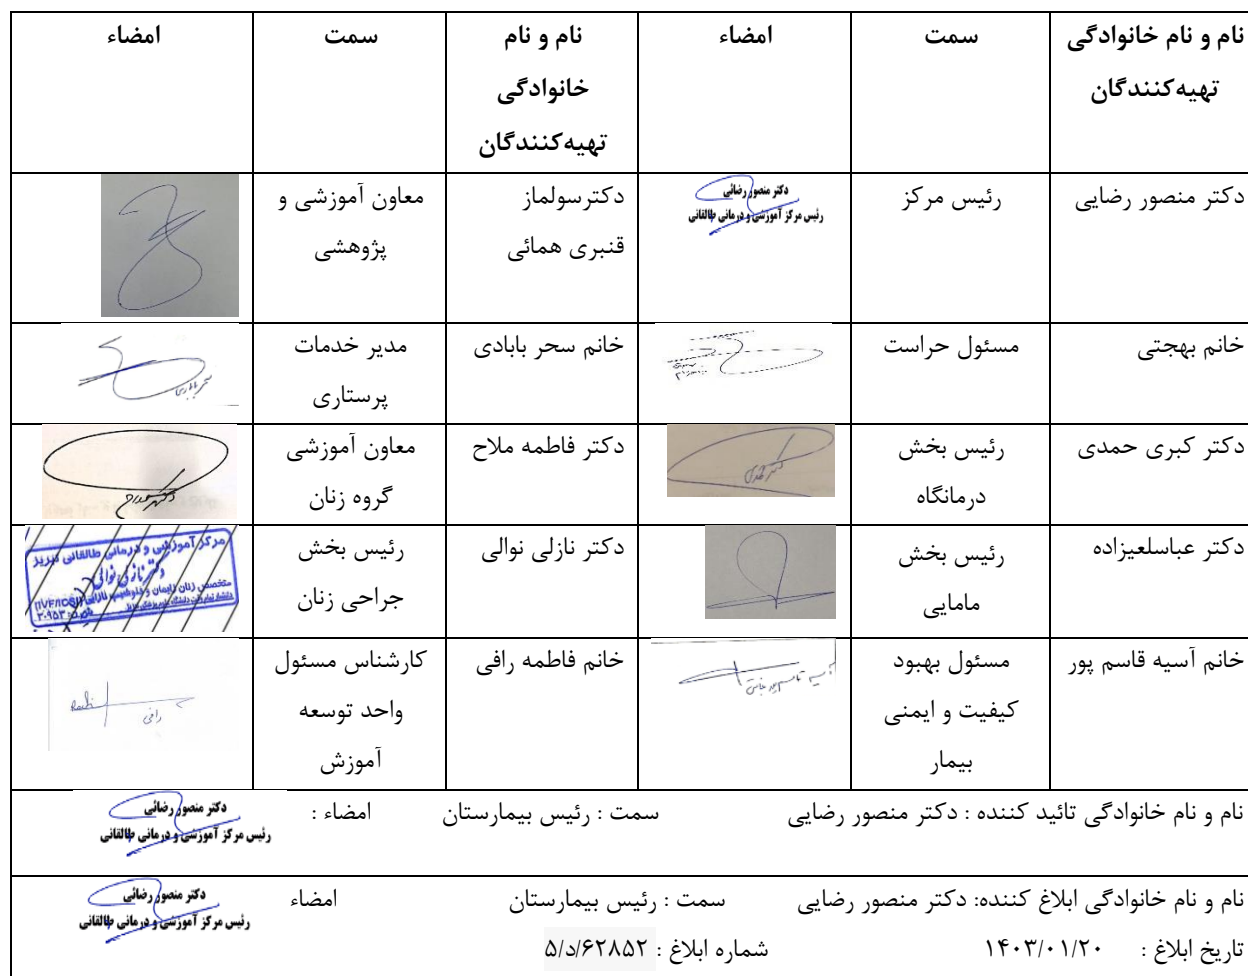 نام و نام خانوادگی تهیه‌کنندگان
سمت
امضاء
نام و نام خانوادگی تهیه‌کنندگان
سمت
امضاء
دکتر منصور رضایی
رئیس مرکز
دکتر منصور رضائی
رئیس مرکز آموزشی و درمانی طالقانی
دکترسولماز قنبری همائی
معاون آموزشی و پژوهشی
خانم بهجتی
مسئول حراست
خانم سحر بابادی
مدیر خدمات پرستاری
دکتر کبری حمدی
رئیس بخش درمانگاه
دکتر فاطمه ملاح
معاون آموزشی گروه زنان
دکتر عباسلعیزاده
رئیس بخش مامایی
دکتر نازلی نوالی
رئیس بخش جراحی زنان
مرکز آموزشی و درمانی طالقانی تبریز
دکتر نازلی نوالی
خانم آسیه قاسم پور
مسئول بهبود کیفیت و ایمنی بیمار
خانم فاطمه رافی
کارشناس مسئول واحد توسعه آموزش
رافی
نام و نام خانوادگی تائید کننده : دکتر منصور رضایی سمت : رئیس بیمارستان امضاء :
دکتر منصور رضائی
رئیس مرکز آموزشی و درمانی طالقانی
نام و نام خانوادگی ابلاغ کننده: دکتر منصور رضایی سمت : رئیس بیمارستان امضاء
دکتر منصور رضائی
رئیس مرکز آموزشی و درمانی طالقانی
تاریخ ابلاغ : ۱۴۰۳/۰۱/۲۰ شماره ابلاغ : ۵/د/۶۲۸۵۲